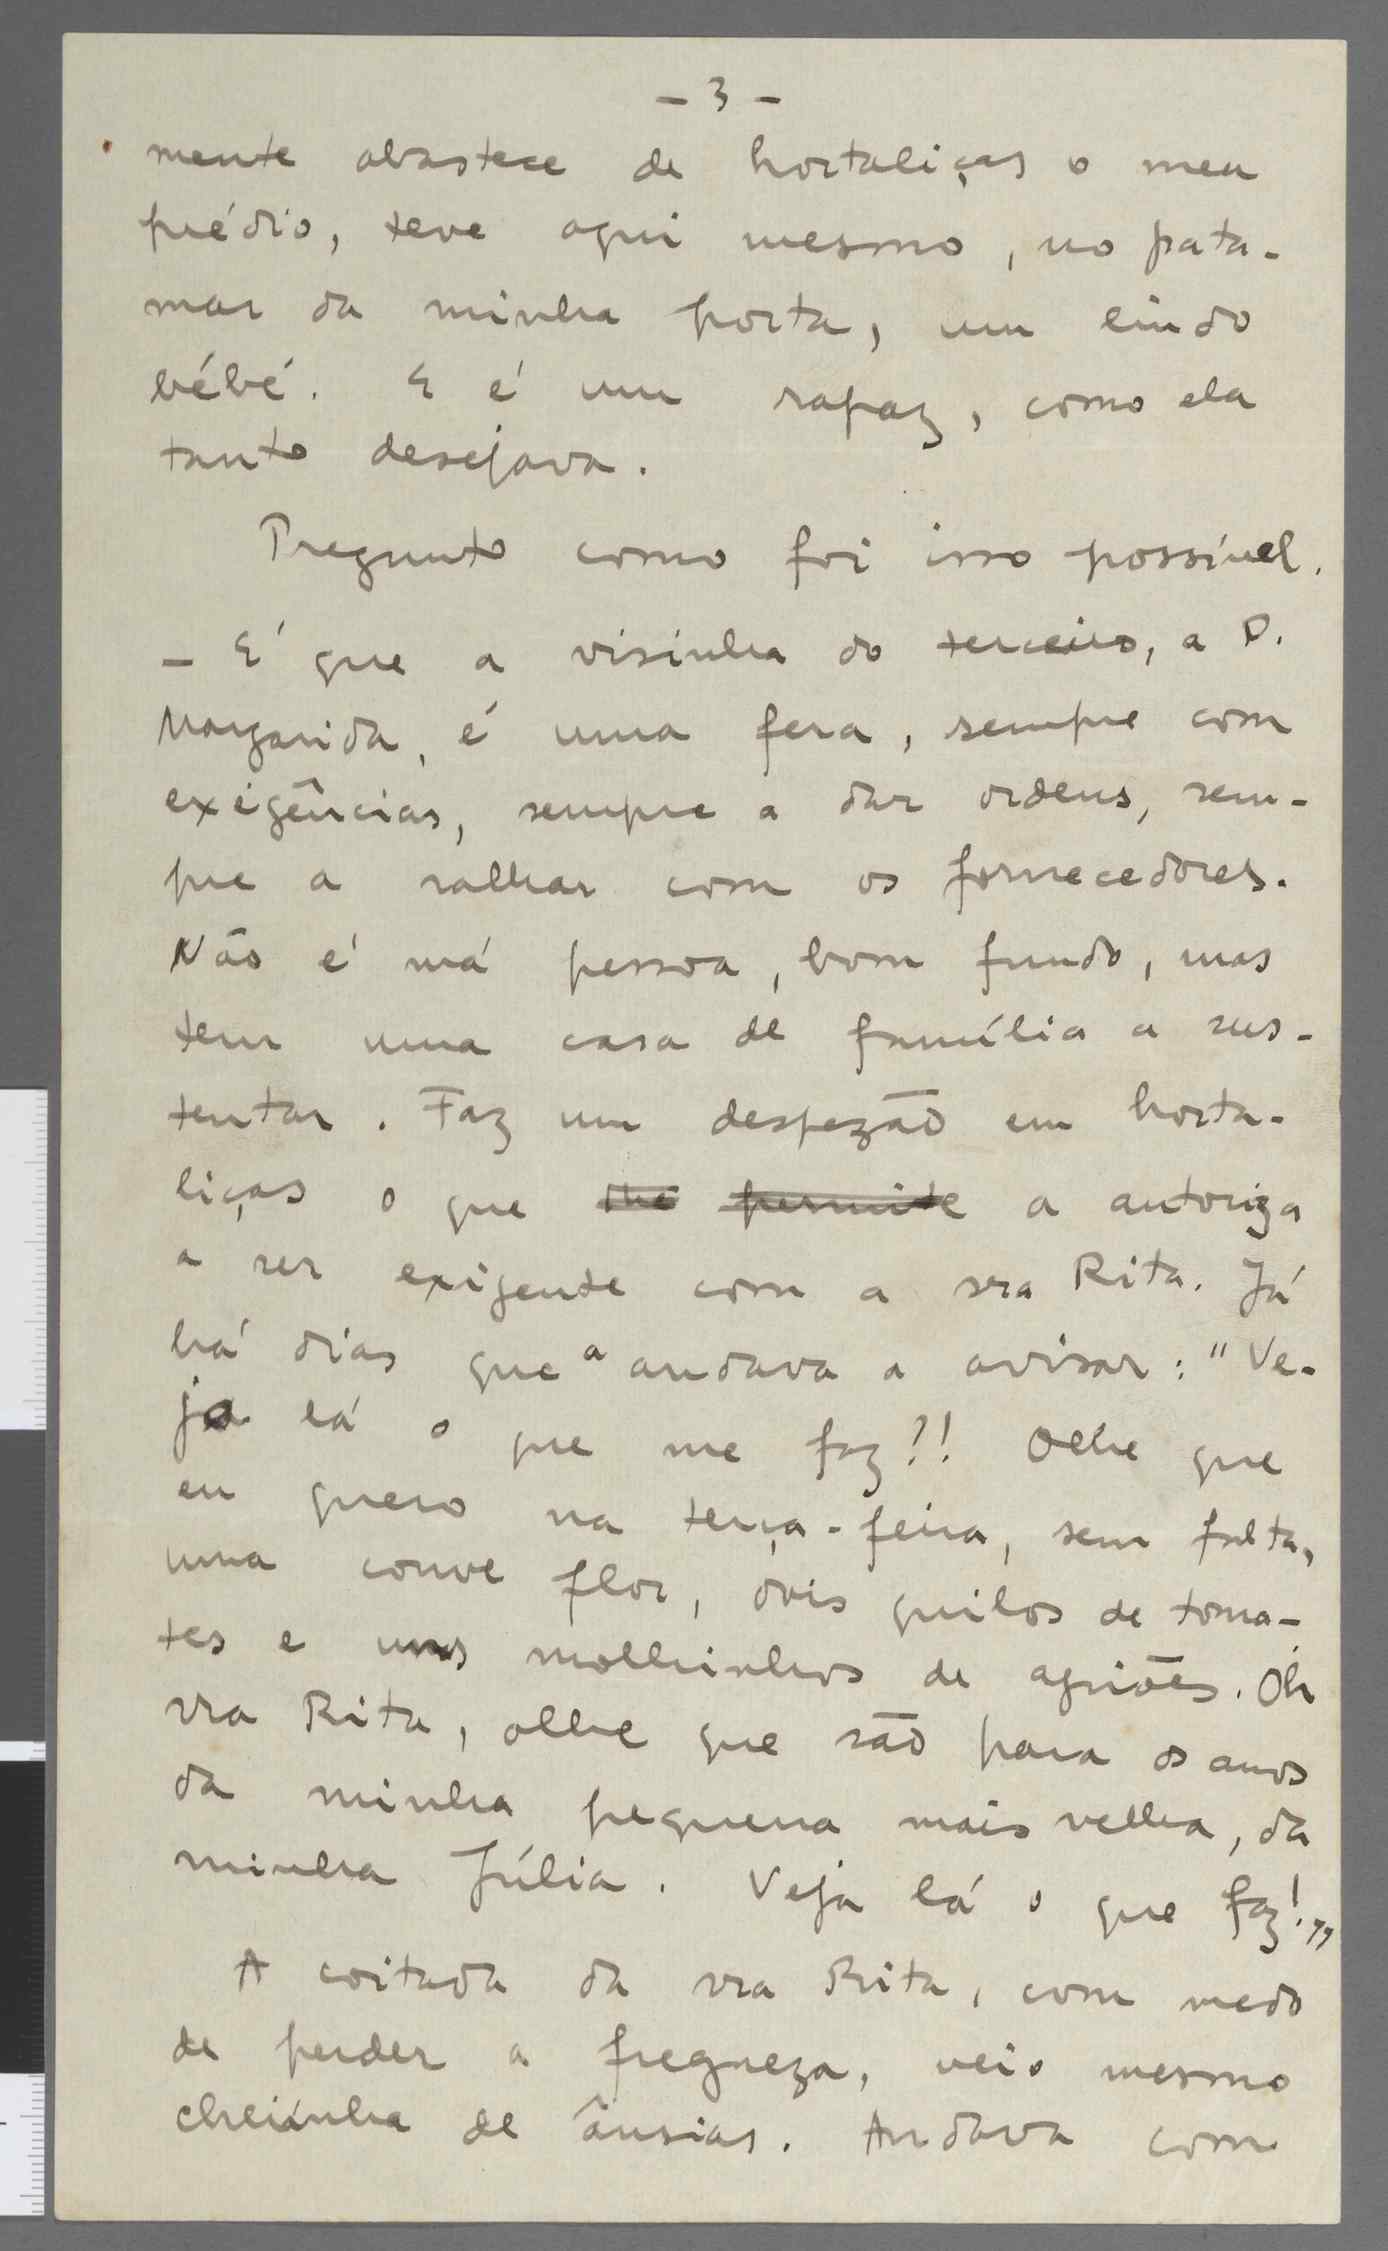 - 3 -
mente abastece de hortaliças o meu
prédio, teve aqui mesmo, no pata-
mar da minha porta, um lindo
bébé. E é um rapaz, como ela
tanto desejava.
Pregunto como foi isso possível.
- É que a visinha do terceiro, a D.
Margarida, é uma fera, sempre com
exigências, sempre a dar ordens, sem-
pre a ralhar com os fornecedores.
Não é má pessoa, bom fundo, mas
tem uma casa de família a sus-
tentar. Faz um despezão em horta-
liças o que lhe permite a autoriza
a ser exigente com a sra Rita. Já
há dias que a andava a avisar: "Ve-
ja lá o que me faz?! Olhe que
eu quero na terça-feira, sem falta,
uma couve flor, dois quilos de toma-
tes e uns molhinhos de agriões. Oh
sra Rita, olhe que são para os anos
da minha pequena mais velha, da
minha Júlia. Veja lá o que faz!"
A coitada da sra Rita, com medo
de perder a fregueza, veio mesmo
cheiínha de ânsias. Andava com